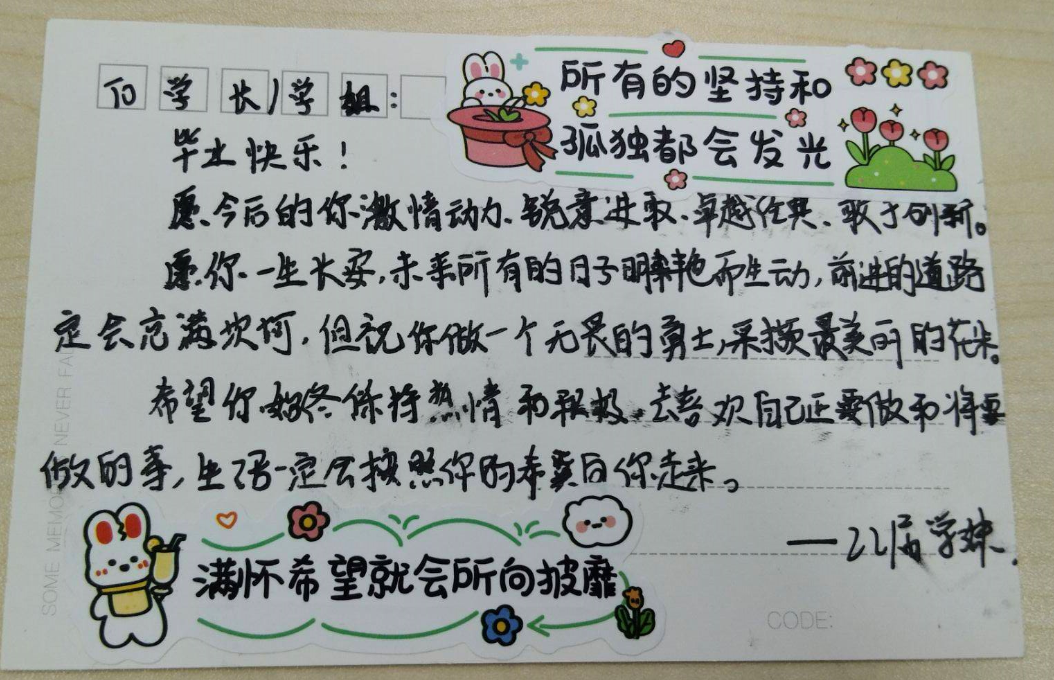 To 学长/学姐:
所有的坚持和
孤独都会发光
毕业快乐!
愿今后的你激情动力、锐意进取、卓越经典、敢于创新。
愿你一生长安,未来所有的日子明艳而生动,前进的道路
定会充满坎坷,但祝你做一个无畏的勇士,采撷最美丽的花朵。
希望你始终保持热情和积极,去喜欢自己正要做和将要
做的事,生活一定会按照你的希冀向你走来。
——22届学妹.
满怀希望就会所向披靡
SOME MEMO NEVER FA
CODE: